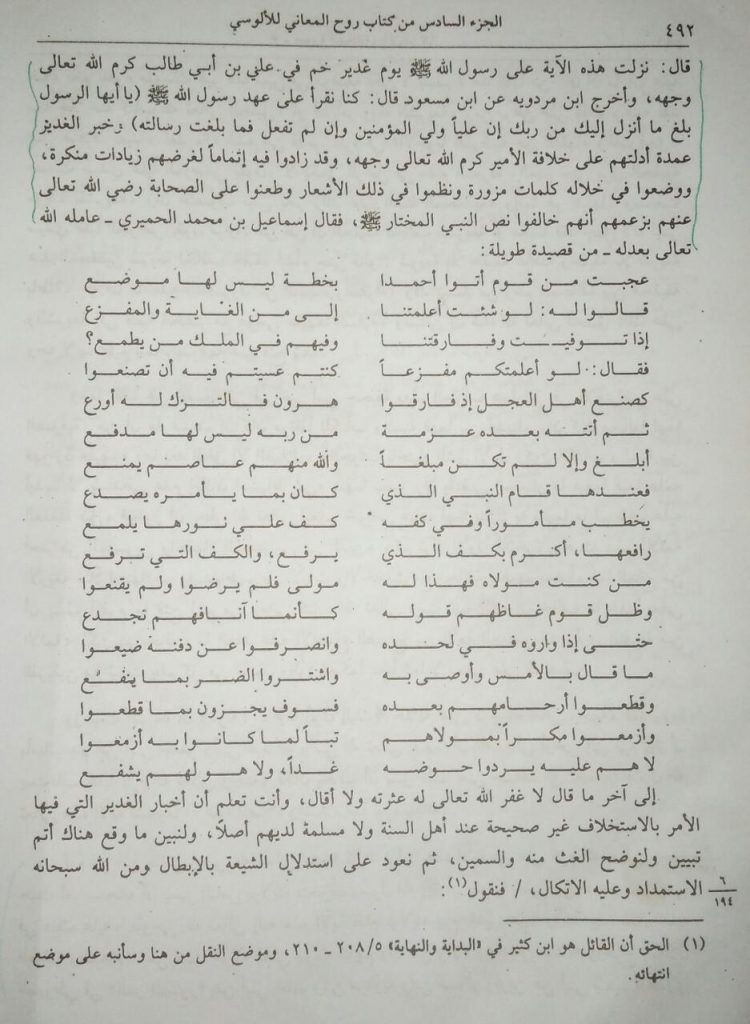 ٤٩٢ الجزء السادس من كتاب روح المعاني للألوسي
قال: نزلت هذه الآية على رسول الله ﷺ يوم غدير خم في علي بن أبي طالب كرم الله تعالى
وجهه، وأخرج ابن مردويه عن ابن مسعود قال: كنا نقرأ على عهد رسول الله ﷺ (يا أيها الرسول
بلغ ما أنزل إليك من ربك إن علياً ولي المؤمنين وإن لم تفعل فما بلغت رسالته) وخبر الغدير
عمدة أدلتهم على خلافة الأمير كرم الله تعالى وجهه، وقد زادوا فيه إتماماً لغرضهم زيادات منكرة،
ووضعوا في خلاله كلمات مزورة ونظموا في ذلك الأشعار وطعنوا على الصحابة رضي الله تعالى
عنهم بزعمهم أنهم خالفوا نص النبي المختار ﷺ، فقال إسماعيل بن محمد الحميري ـ عامله الله
تعالى بعدله ـ من قصيدة طويلة:
عجبت من قوم أتوا أحمدا بخطة ليس لها موضع
قالوا له: لو شئت أعلمتنا إلى من الغاية والمفزع
إذا توفيت وفارقتنا وفيهم في الملك من يطمع؟
فقال: لو أعلمتكم مفزعاً كنتم عسيتم فيه أن تصنعوا
كصنع أهل العجل إذ فارقوا هرون فالترك له أورع
ثم أتته بعده عزمة من ربه ليس لها مدفع
أبلغ وإلا لم تكن مبلغاً والله منهم عاصم يمنع
فعندها قام النبي الذي كان بما يأمره يصدع
يخطب مأموراً وفي كفه كف علي نورها يلمع
رافعها، أكرم بكف الذي يرفع، والكف التي ترفع
من كنت مولاه فهذا له مولى فلم يرضوا ولم يقنعوا
وظل قوم غاظهم قوله كأنما آنافهم تجدع
حتى إذا واروه في لحده وانصرفوا عن دفنه ضيعوا
ما قال بالأمس وأوصى به واشتروا الضر بما ينفع
وقطعوا أرحامهم بعده فسوف يجزون بما قطعوا
وأزمعوا مكراً بمولاهم تباً لما كانوا به أزمعوا
لا هم عليه يردوا حوضه غداً، ولا هو لهم يشفع
إلى آخر ما قال لا غفر الله تعالى له عثرته ولا أقال، وأنت تعلم أن أخبار الغدير التي فيها
الأمر بالاستخلاف غير صحيحة عند أهل السنة ولا مسلمة لديهم أصلاً، ولنبين ما وقع هناك أتم
تبيين ولنوضح الغث منه والسمين، ثم نعود على استدلال الشيعة بالإبطال ومن الله سبحانه
الاستمداد وعليه الاتكال، / فنقول(١):
٦
١٩٤
(١) الحق أن القائل هو ابن كثير في «البداية والنهاية» ٢٠٨/٥ ـ ٢١٠، وموضع النقل من هنا وسأنبه على موضع
انتهائه.